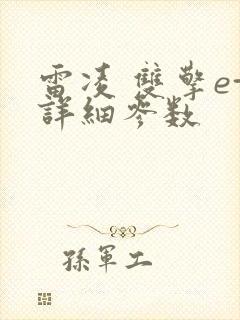 雷凌 雙擎e+
詳細参数
孫軍工